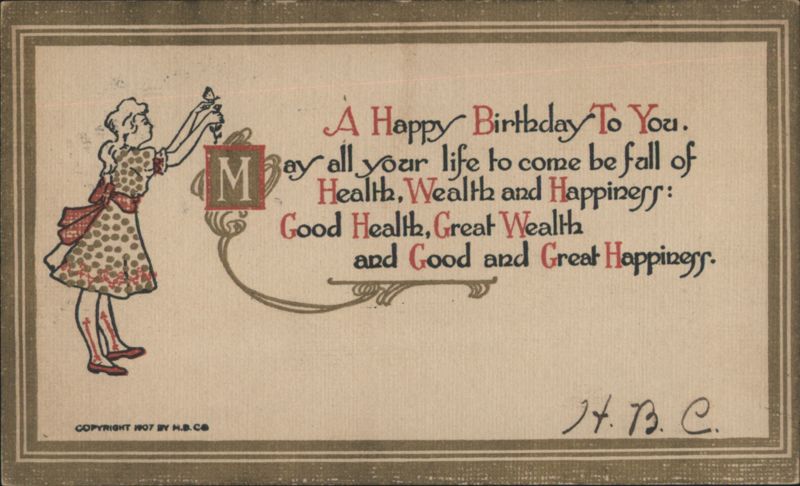 A Happy Birthday To You.
May all your life to come be full of
Health, Wealth and Happiness:
Good Health, Great Wealth
and Good and Great Happiness.
COPYRIGHT 1907 BY M.B. CO
H. B. C.